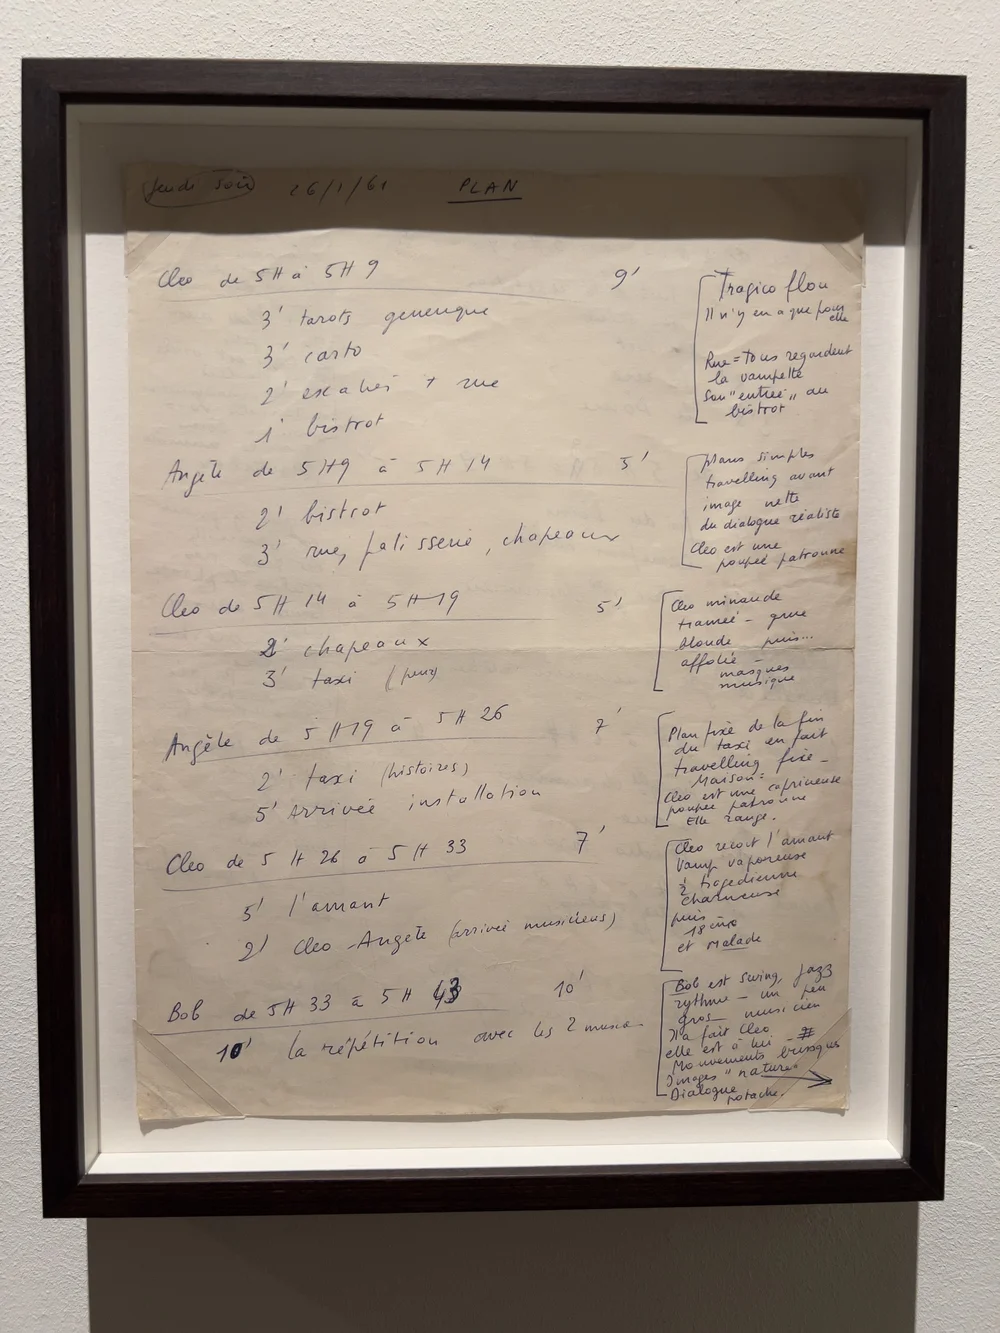 Jeudi soir 26/1/61 PLAN
Cleo de 5H à 5H 9 9'
3' tarots generique
3' carto
2' escalier + rue
1' bistrot
Tragico flou
Il n'y en a que pour
elle
Rue = tous regardent
la vampette
son "entrée" au
bistrot
Angèle de 5H9 à 5H14 5'
2' bistrot
3' rue, patisserie, chapeaux
plans simples
travelling avant
image nette
du dialogue réaliste
Cleo est une
poupée patronne
Cleo de 5H 14 à 5H19 5'
2' chapeaux
3' taxi (peur)
Cleo minaude
blonde puis...
affolée
masques
musique
Angèle de 5H19 à 5H 26 7'
2' taxi (histoires)
5' Arrivée installation
Plan fixe de la fin
du taxi en fait
travelling fixe -
Maison =
Cleo est une capricieuse
poupée patronne
Elle range.
Cleo de 5 H 26 à 5 H 33 7'
5' l'amant
2' Cleo-Angèle (arrivée musiciens)
Cleo reçoit l'amant
Vamp vaporeuse
½ tragedienne
charmeuse
puis
et malade
Bob de 5H 33 à 5H 43 10'
10' la répétition avec les 2 music-
Bob est swing, jazz
rythme - un peu
gros musicien
Il a fait Cleo
elle est à lui #
Mouvements brusques
Images "nature"
Dialogue
potache.